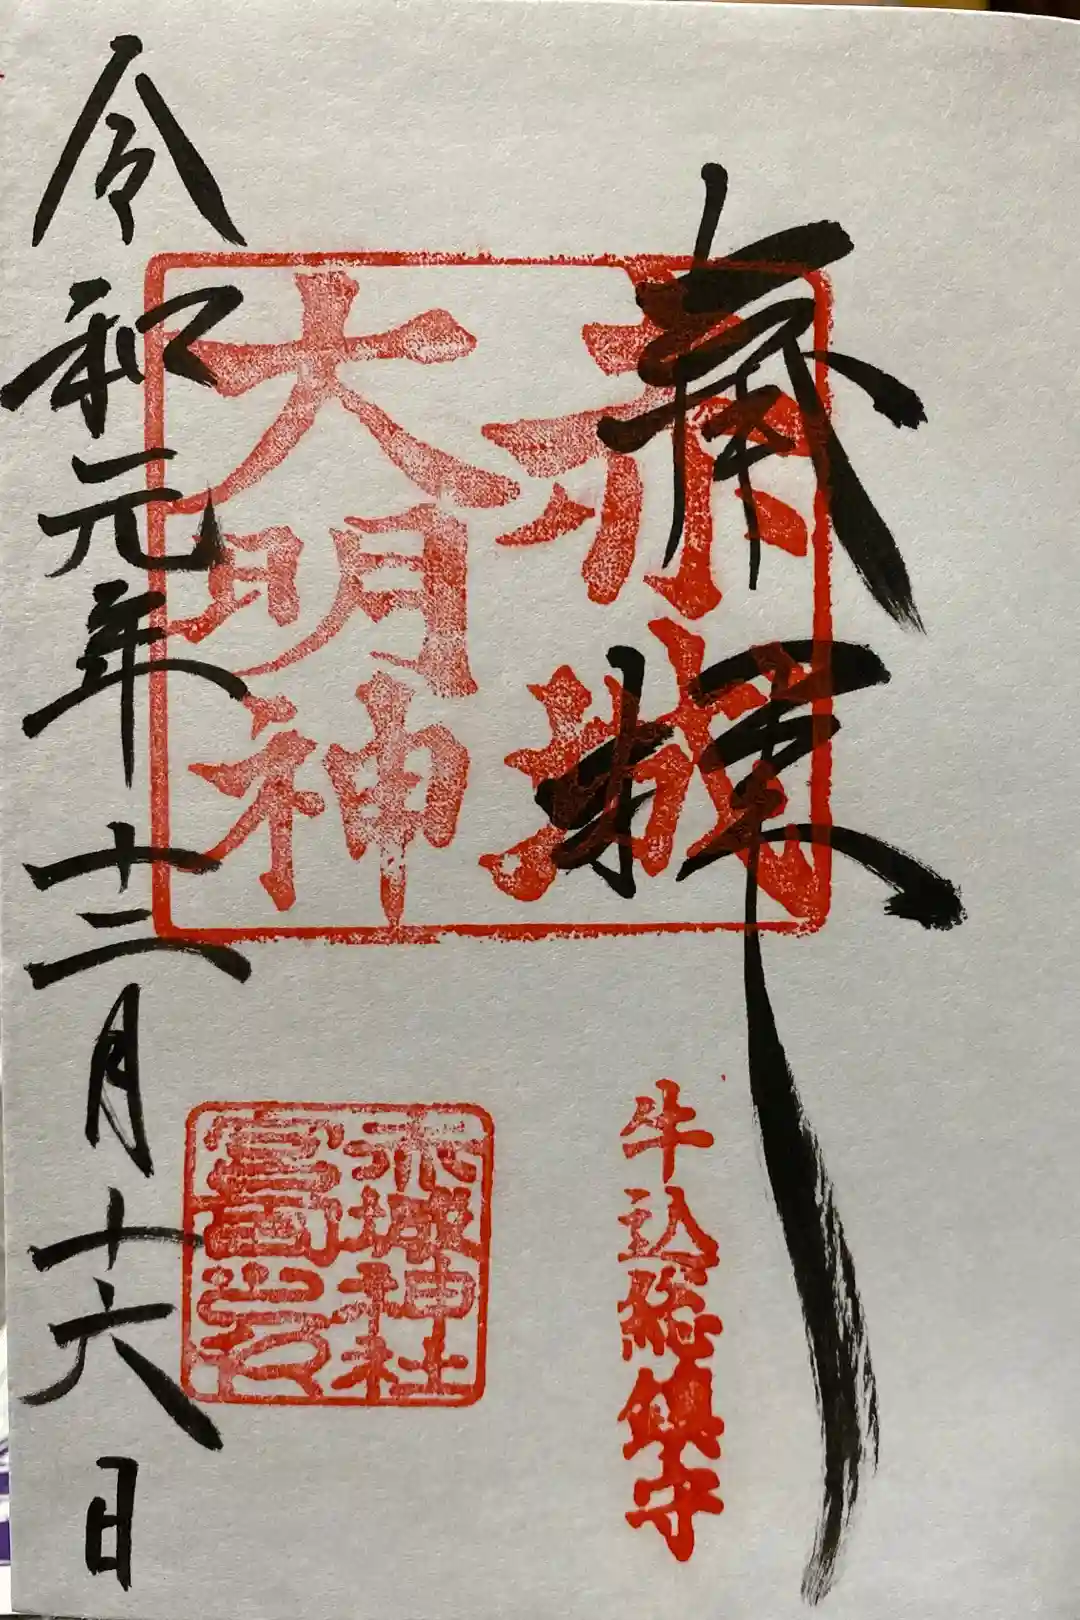 奉拝
赤城
大明神
牛込総鎮守
赤城神社
宮司之印
令和元年十二月十六日